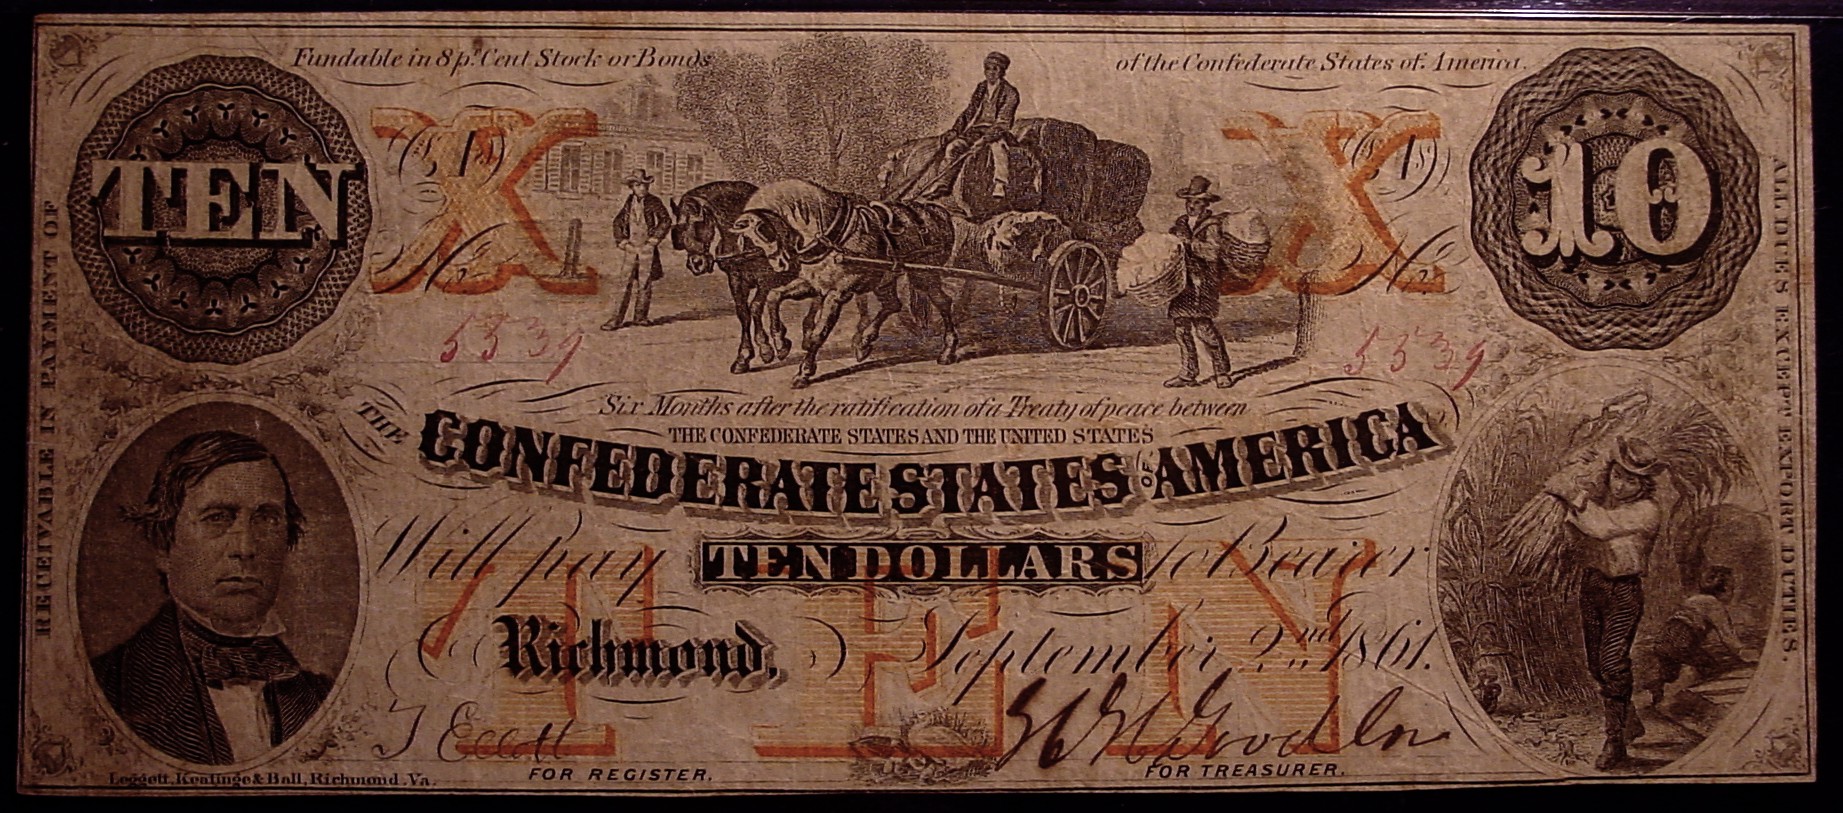 Fundable in 8 pr. Cent Stock or Bonds of the Confederate States of America.
TEN
X X
10
No. No.
5339 5339
RECEIVABLE IN PAYMENT OF
ALL DUES EXCEPT EXPORT DUTIES.
Six Months after the ratification of a Treaty of peace between
THE CONFEDERATE STATES AND THE UNITED STATES
THE CONFEDERATE STATES OF AMERICA
Will pay TEN DOLLARS to Bearer
TEN
Richmond, September 2nd. 1861.
FOR REGISTER. FOR TREASURER.
Leggett, Keatinge & Ball, Richmond, Va.